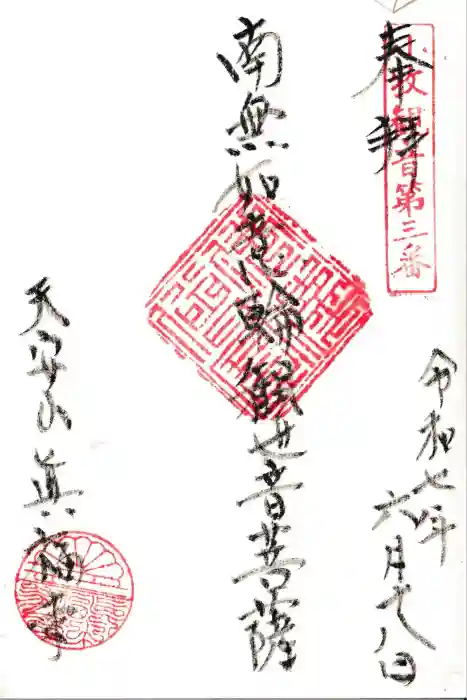 奉拝
観音第三番
令和七年
六月十八日
南無如意輪観世音菩薩
天安山 真福寺